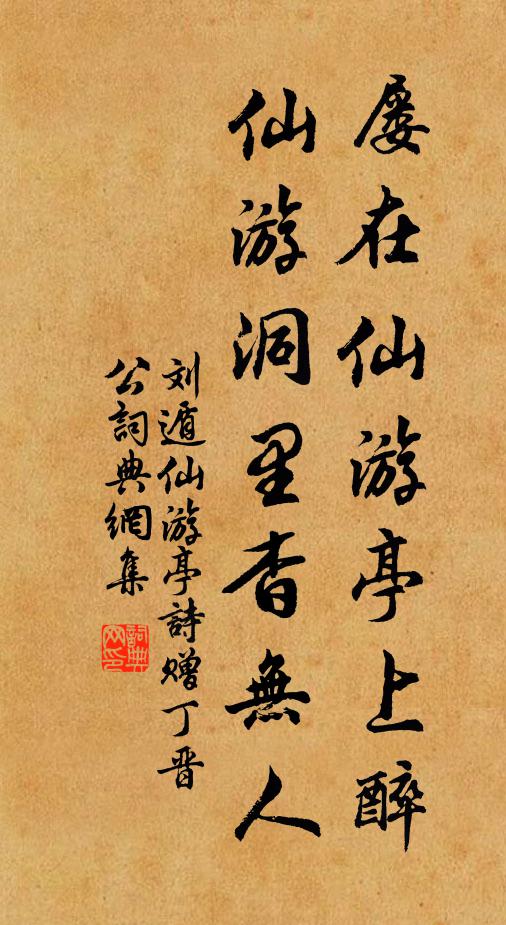 屡在仙游亭上醉
仙游洞里杳無人
刘遁仙游亭詩贈丁晋
公詞典網集
詞典
网印